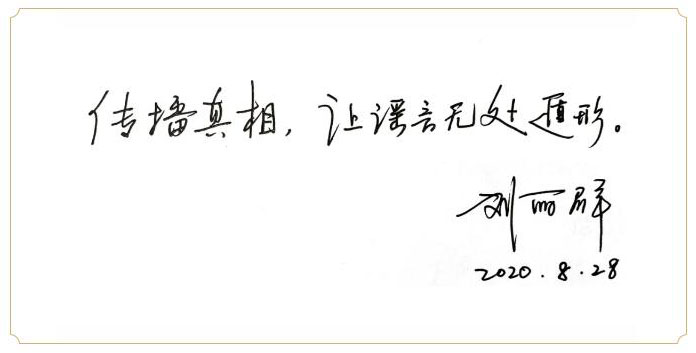 传播真相，让谣言无处遁形。
刘丽群
2020.8.28